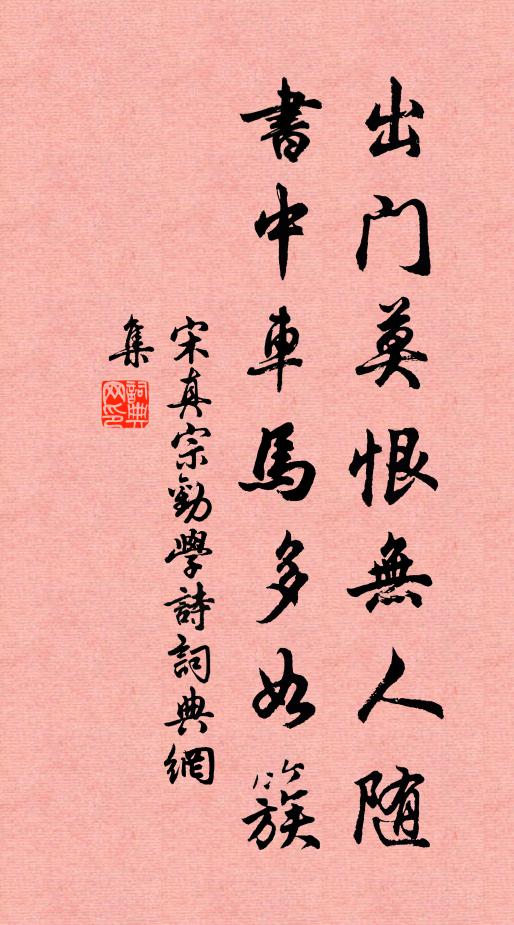 出门莫恨無人随
書中車馬多如簇
宋真宗勸學詩詞典網
集
詞典网印